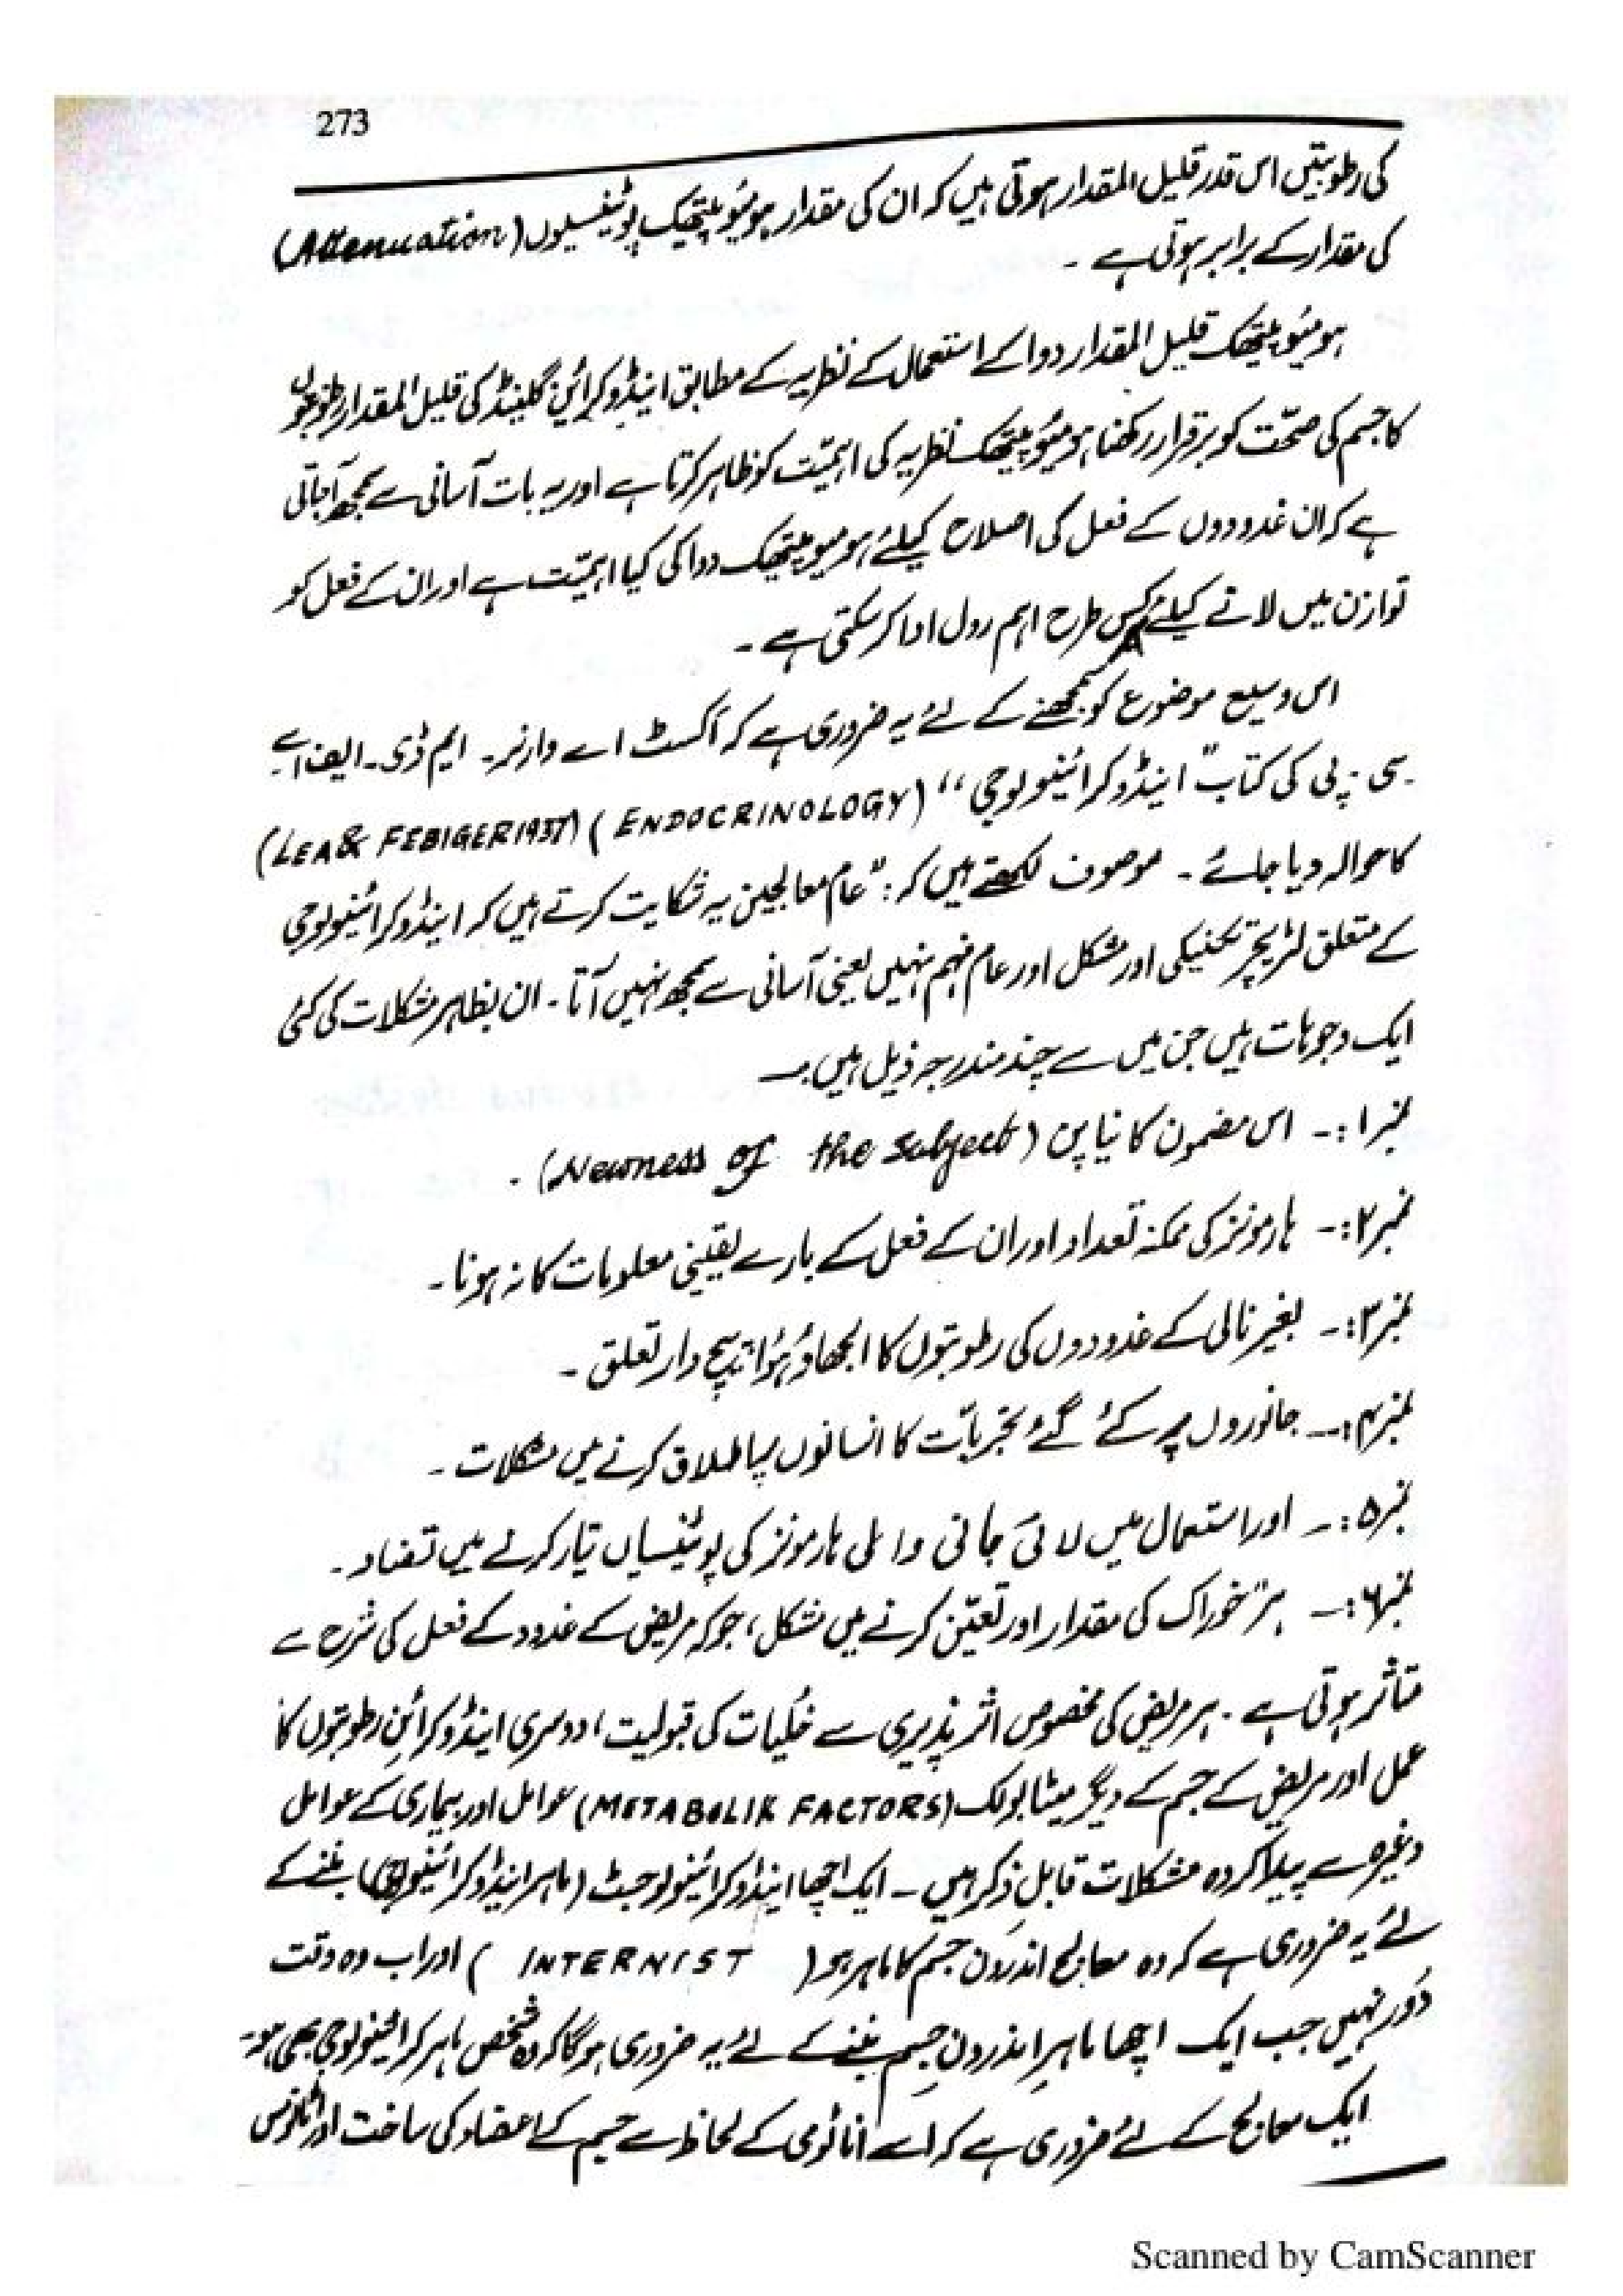 273
کی رطوبتیں اس قدر قلیل المقدار ہوتی ہیں کہ ان کی مقدار ہومیوپیتھیک پوٹینسیوں (Attenuation)
کی مقدار کے برابر ہوتی ہے ۔
ہومیوپیتھک قلیل المقدار دوا کے استعمال کے نظریہ کے مطابق اینڈوکرائن گلینڈ کی قلیل المقدار رطوبتوں
کا جسم کی صحّت کو برقرار رکھنا ہومیوپیتھک نظریہ کی اہمیّت کو ظاہر کرتا ہے اور یہ بات آسانی سے سمجھ آجاتی
ہے کہ ان غدودوں کے فعل کی اصلاح کیلئے ہومیوپیتھیک دوا کی کیا اہمیّت ہے اور ان کے فعل کو
توازن میں لانے کیلئے کس طرح اہم رول ادا کر سکتی ہے ۔
اس وسیع موضوع کو سمجھنے کے لئے یہ ضروری ہے کہ آکسٹ اے وارنر۔ ایم ڈی۔ ایف اے
۔سی ۔ پی کی کتاب "اینڈوکرائینولوجی" (ENDOCRINOLOGY) (LEA & FEBIGER 1937)
کا حوالہ دیا جائے ۔ موصوف لکھتے ہیں کہ : "عام معالجین یہ شکایت کرتے ہیں کہ اینڈوکرائینولوجی
کے متعلق لٹریچر تکنیکی اور مشکل اور عام فہم نہیں یعنی آسانی سے سمجھ نہیں آتا ۔ ان بظاہر مشکلات کی کئی
ایک وجوہات ہیں جن میں سے چند مندرجہ ذیل ہیں :ـ
نمبر ۱ :- اس مضمون کا نیا پن (Newness of the Subject) ۔
نمبر ۲ :- ہارمونز کی ممکنہ تعداد اور ان کے فعل کے بارے یقینی معلومات کا نہ ہونا ۔
نمبر ۳ :- بغیر نالی کے غدودوں کی رطوبتوں کا الجھاؤ ہؤا پیچ دار تعلق ۔
نمبر ۴ :- جانوروں پر کئے گئے تجربات کا انسانوں پہ اطلاق کرنے میں مشکلات ۔
نمبر ۵ :- اور استعمال میں لائی جاتی والی ہارمونز کی پوٹینسیاں تیار کرنے میں تضاد ۔
نمبر ۶ :- ہر خوراک کی مقدار اور تعیّن کرنے میں مشکل، جو کہ مریض کے غدود کے فعل کی شرح سے
متاثر ہوتی ہے ۔ ہر مریض کی مخصوص اثر پذیری سے خُلیات کی قبولیت، دوسری اینڈوکرائن رطوبتوں کا
عمل اور مریض کے جسم کے دیگر میٹابولک (METABOLIK FACTORS) عوامل اور بیماری کے عوامل
وغیرہ سے پیدا کردہ مشکلات قابلِ ذکر ہیں ۔ ایک اچھا اینڈوکرائینولوجسٹ (ماہر اینڈوکرائینولوجی) بننے کے
لئے یہ ضروری ہے کہ وہ معالج اندرون جسم کا ماہر ہو ( INTERNIST ) اور اب وہ وقت
دُور نہیں جب ایک اچھا ماہرِ اندرونِ جسم بننے کے لئے یہ ضروری ہوگا کہ وہ شخص ماہر کرائینولوجی بھی ہو ۔
ایک معالج کے لئے ضروری ہے کہ اسے اناٹومی کے لحاظ سے جسم کے اعضاء کی ساخت اور
Scanned by CamScanner